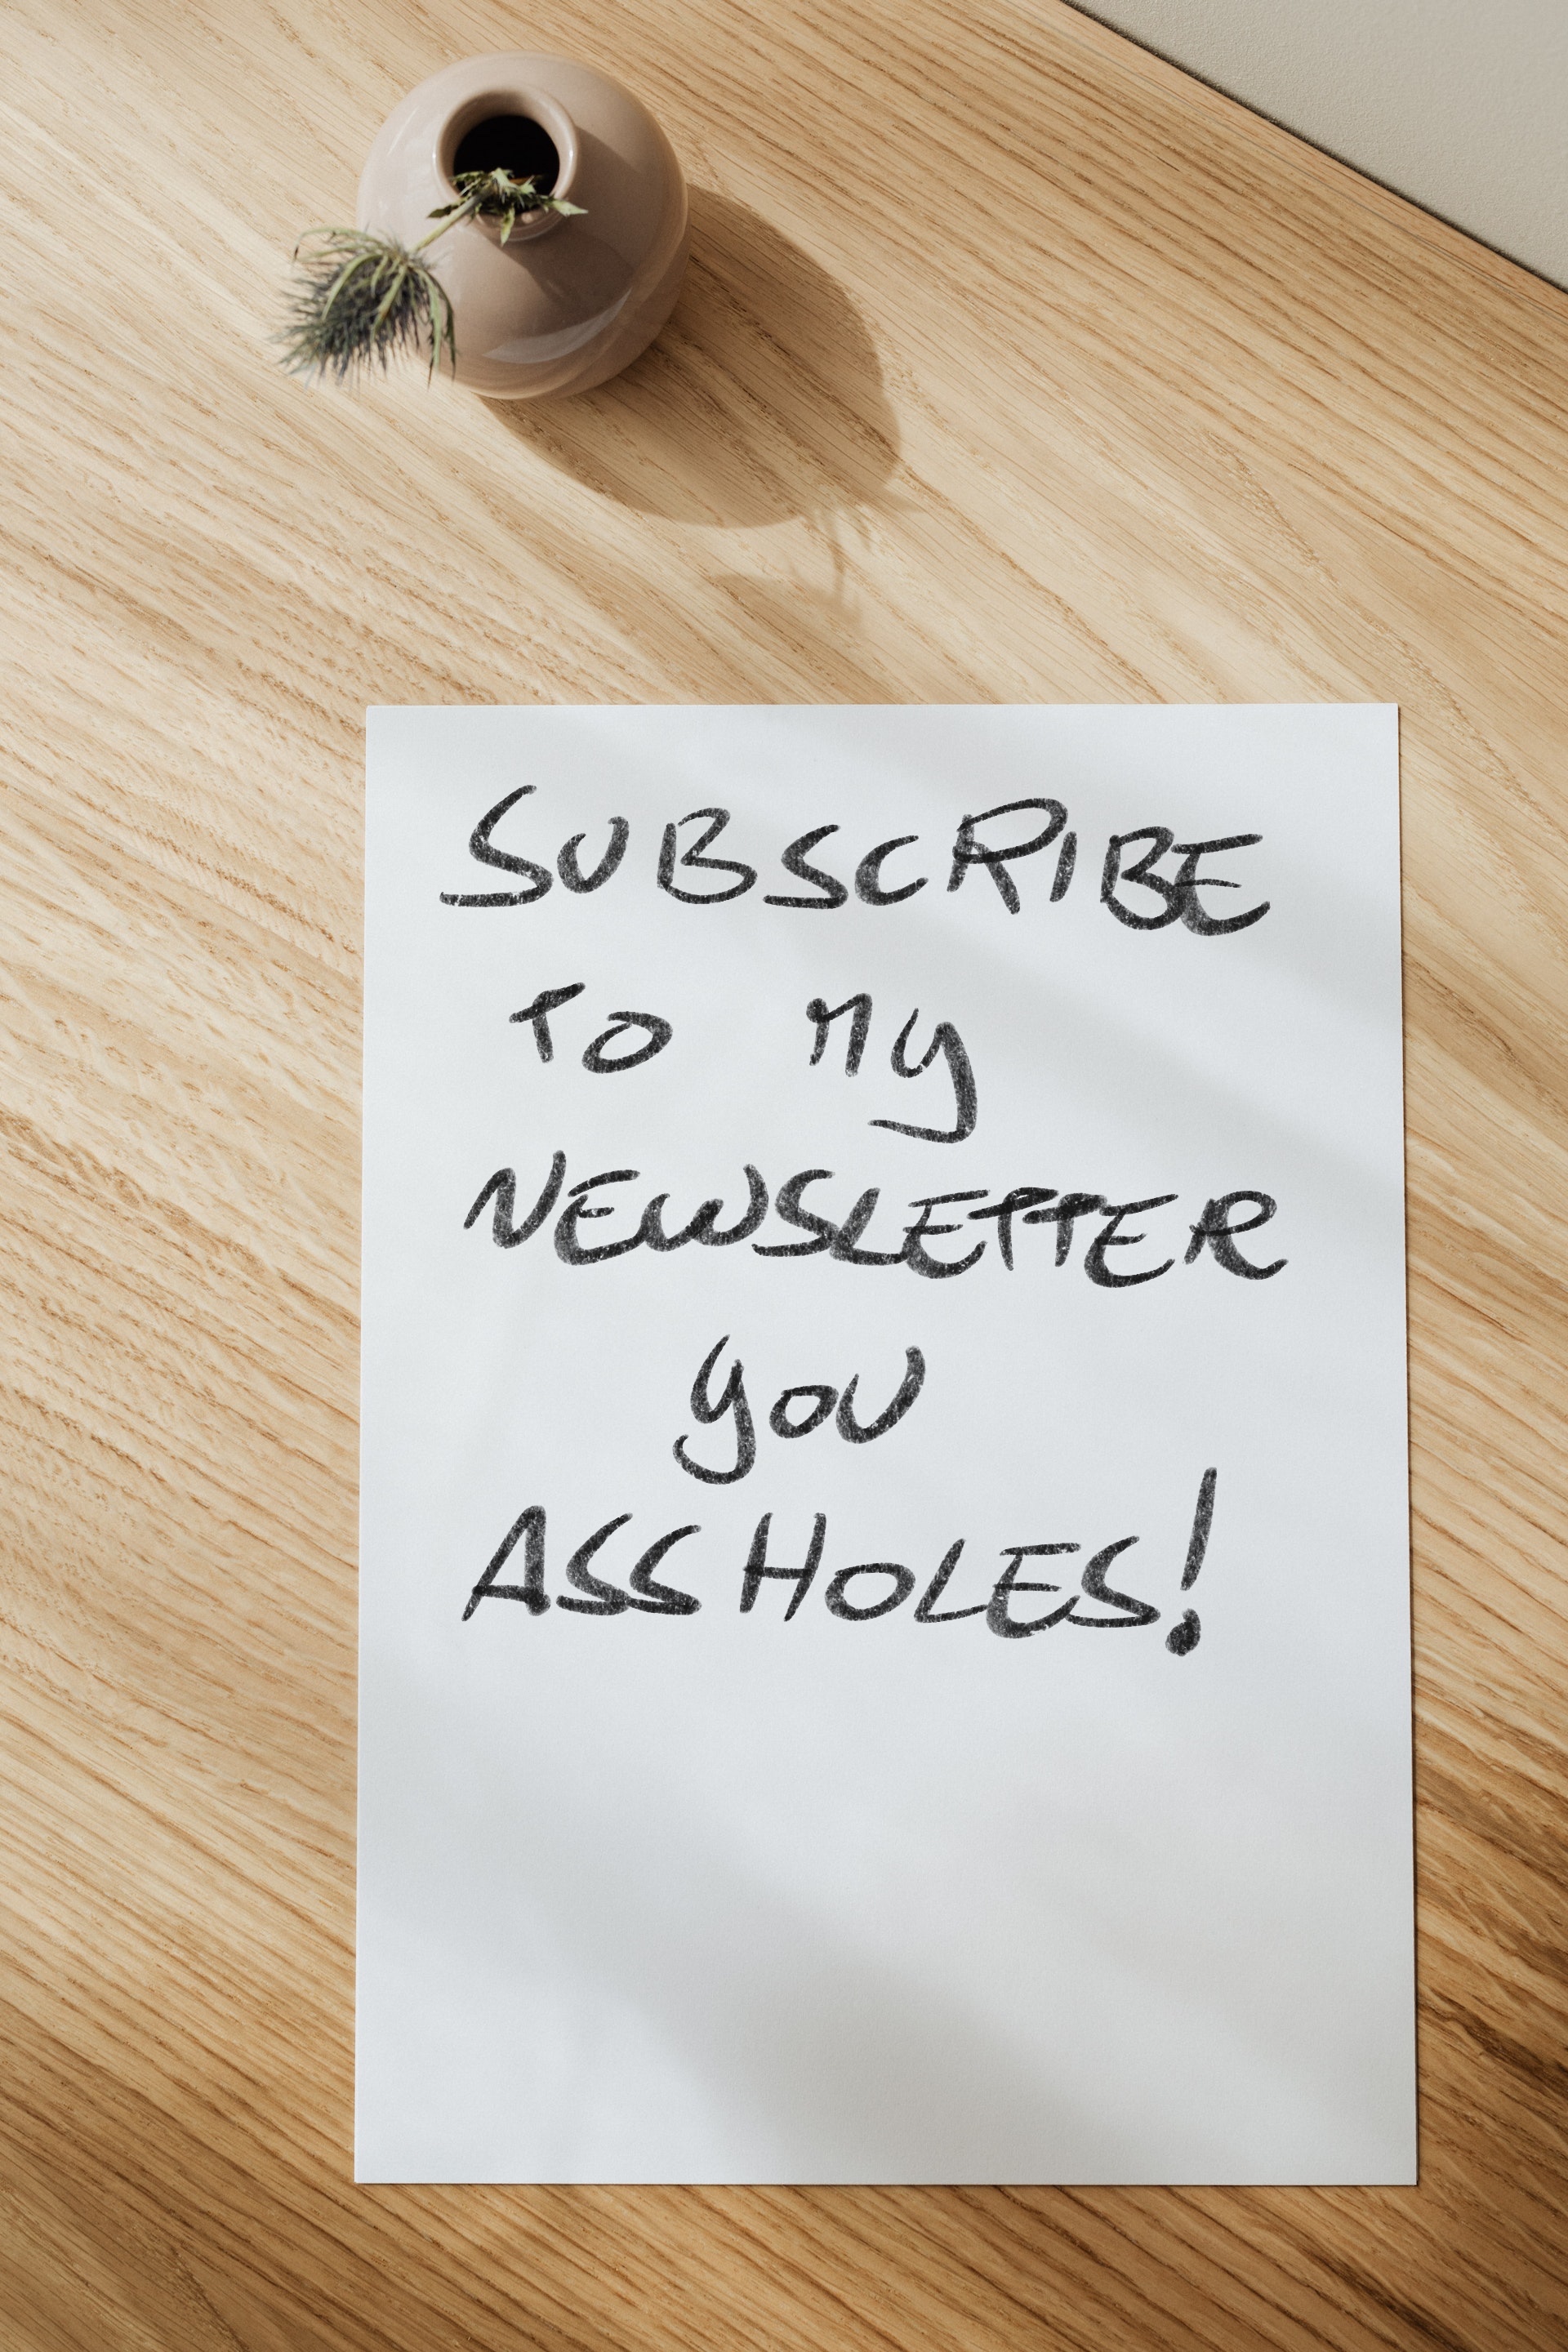 SUBSCRIBE
TO MY
NEWSLETTER
YOU
ASSHOLES!